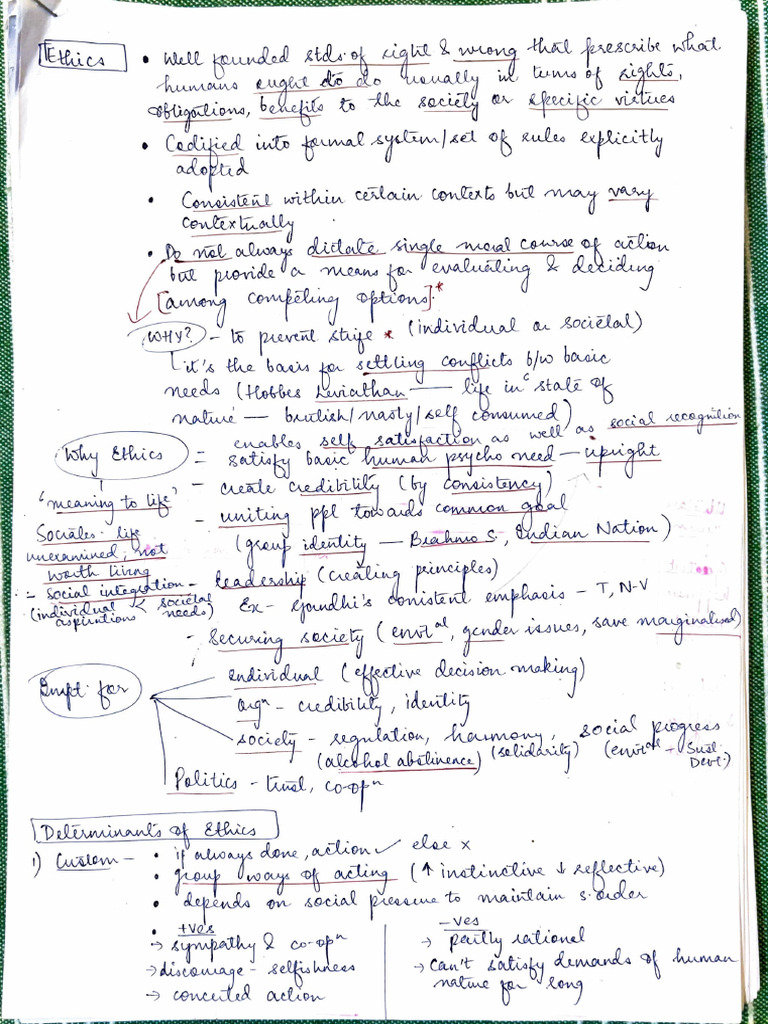 Ethics
• Well founded stds. of right & wrong that prescribe what
humans ought to do usually in terms of rights,
obligations, benefits to the society or specific virtues
• Codified into formal system/set of rules explicitly
adopted
• Consistent within certain contexts but may vary
contextually
• Do not always dictate single moral course of action
but provide a means for evaluating & deciding
[among competing options].*
WHY? - to prevent strife * (individual or societal)
it's the basis for settling conflicts b/w basic
needs (Hobbes Leviathan — life in state of
nature — brutish/nasty/self consumed)
enables self satisfaction as well as social recognition
Why Ethics = satisfy basic human psycho need — upright
- create credibility (by consistency)
'meaning to life' - uniting ppl towards common goal
(group identity — Brahmo S., Indian Nation)
Socrates - life
unexamined, not
worth living
- leadership (creating principles)
= social integration -
(individual aspirations < societal needs)
Ex - Gandhi's consistent emphasis - T, N-V
- Securing society (envtal, gender issues, save marginalised)
Impt. for
individual (effective decision making)
orgn - credibility, identity
society - regulation, harmony, social progress
(alcohol abstinence) (solidarity) (envtal + Sust. Devt.)
Politics - trust, co-opn
Determinants of Ethics
1) Custom - • if always done, action ✓ else x
• group ways of acting (↑ instinctive ↓ reflective)
• depends on social pressure to maintain s. order
• +ves
→ sympathy & co-opn
→ discourage - selfishness
→ concerted action
-ves
→ partly rational
→ can't satisfy demands of human
nature for long